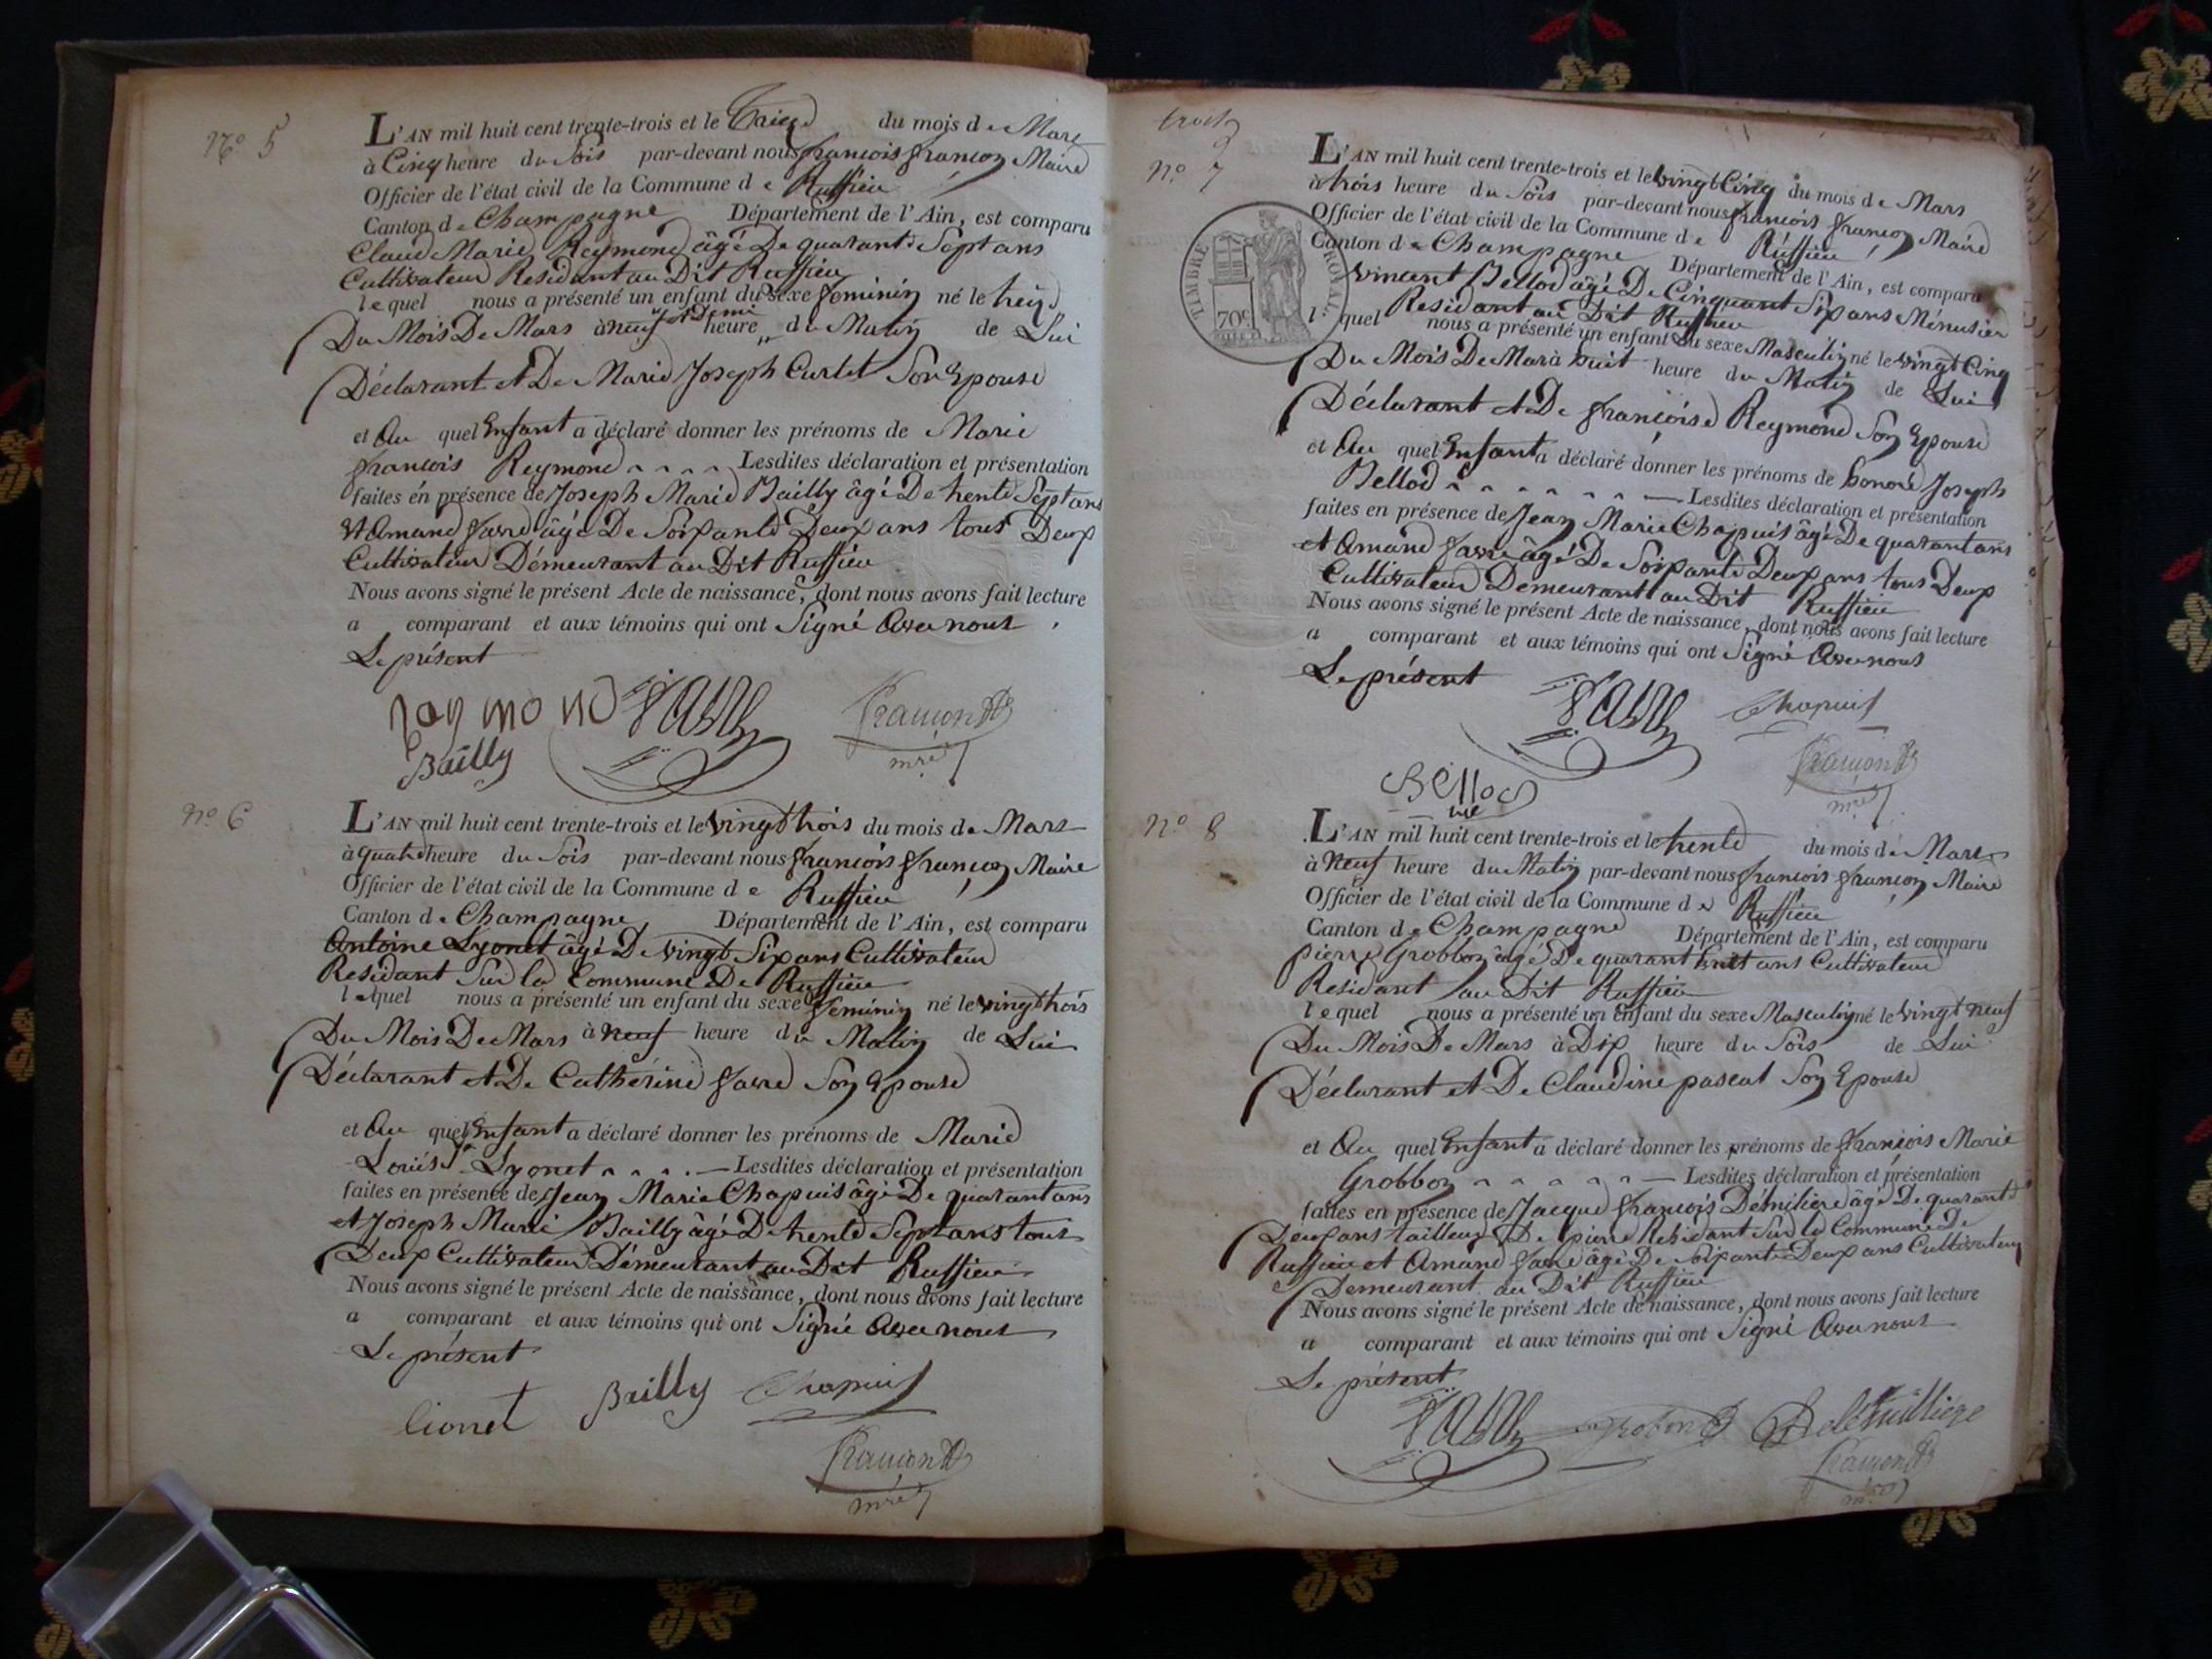 N.° 5
L'AN mil huit cent trente-trois et le treize du mois de Mars
à Cinq heure du Soir par-devant nous françois françon Maire
Officier de l'état civil de la Commune de Ruffieu
Canton de Champagne Département de l'Ain, est comparu
Claud Marie Reymond âgé De quarante Sept ans
Cultivateur Residant au Dit Ruffieu
lequel nous a présenté un enfant du sexe feminin né le treize
Du Mois De Mars à neuf et Demi heure du Matin de Lui
Déclarant et De Marie Joseph Curlet Son Epouse
et Au quel Enfant a déclaré donner les prénoms de Marie
francois Reymond Lesdites déclaration et présentation
faites en présence de Joseph Marie Bailly âgé De trente Sept ans
et Amand favre âgé De Soixante Deux ans tous Deux
Cultivateur Démeurant au Dit Ruffieu
Nous avons signé le présent Acte de naissance, dont nous avons fait lecture
a comparant et aux témoins qui ont Signé Avec nous
Le présent
Raymond favre françon
Bailly mre
N.° 6
L'AN mil huit cent trente-trois et le vingt trois du mois de Mars
à quatre heure du Soir par-devant nous françois françon Maire
Officier de l'état civil de la Commune de Ruffieu
Canton de Champagne Département de l'Ain, est comparu
Antoine Lyonet âgé De vingt Six ans Cultivateur
Residant Sur la Commune De Ruffieu
lequel nous a présenté un enfant du sexe feminin né le vingt trois
Du Mois De Mars à neuf heure du Matin de Lui
Déclarant et De Cathérine favre Son Epouse
et Au quel Enfant a déclaré donner les prénoms de Marie
Lyonet Lesdites déclaration et présentation
faites en présence de Jean Marie Chapuis âgé De quarant ans
et Joseph Marie Bailly âgé De trente Sept ans tous
Deux Cultivateur Démeurant au Dit Ruffieu
Nous avons signé le présent Acte de naissance, dont nous avons fait lecture
a comparant et aux témoins qui ont Signé Avec nous
Le présent
Lionet Bailly Chapuis
françon
mre
trois
N.° 7
TIMBRE ROYAL
70c
L'AN mil huit cent trente-trois et le vingt Cinq du mois de Mars
à trois heure du Soir par-devant nous françois françon Maire
Officier de l'état civil de la Commune de Ruffieu
Canton de Champagne Département de l'Ain, est comparu
Vincent Bellod âgé De Cinquant Six ans Ménusier
Residant au Dit Ruffieu
lequel nous a présenté un enfant du sexe Masculin né le vingt Cinq
Du Mois De Mar à huit heure du Matin de Lui
Déclarant et De françoise Reymond Son Epouse
et Au quel Enfant a déclaré donner les prénoms de honoré Joseph
Bellod Lesdites déclaration et présentation
faites en présence de Jean Marie Chapuis âgé De quarant ans
et Amand favre âgé De Soixante Deux ans tous Deux
Cultivateur Demeurant au Dit Ruffieu
Nous avons signé le présent Acte de naissance, dont nous avons fait lecture
a comparant et aux témoins qui ont Signé Avec nous
Le présent
favre Chapuis
françon
Bellod mre
N.° 8
L'AN mil huit cent trente-trois et le trente du mois de Mars
à Neuf heure du Matin par-devant nous francois françon Maire
Officier de l'état civil de la Commune de Ruffieu
Canton de Champagne Département de l'Ain, est comparu
pierre Grobbon âgé De quarant huit ans Cultivateur
Residant au Dit Ruffieu
lequel nous a présenté un enfant du sexe Masculin né le vingt neuf
Du Mois De Mars à Dix heure du Soir de Lui
Déclarant et De Claudine pascal Son Epouse
et Au quel Enfant a déclaré donner les prénoms de françois Marie
Grobbon Lesdites déclaration et présentation
faites en présence de Jacque françois Démiliere âgé De quarante
Deux ans tailleur De pierre Residant Sur la Commune De
Ruffieu et Amand favre âgé De Soixante Deux ans Cultivateur
Demeurant au Dit Ruffieu
Nous avons signé le présent Acte de naissance, dont nous avons fait lecture
a comparant et aux témoins qui ont Signé Avec nous
Le présent
favre Grobon
françon
mre